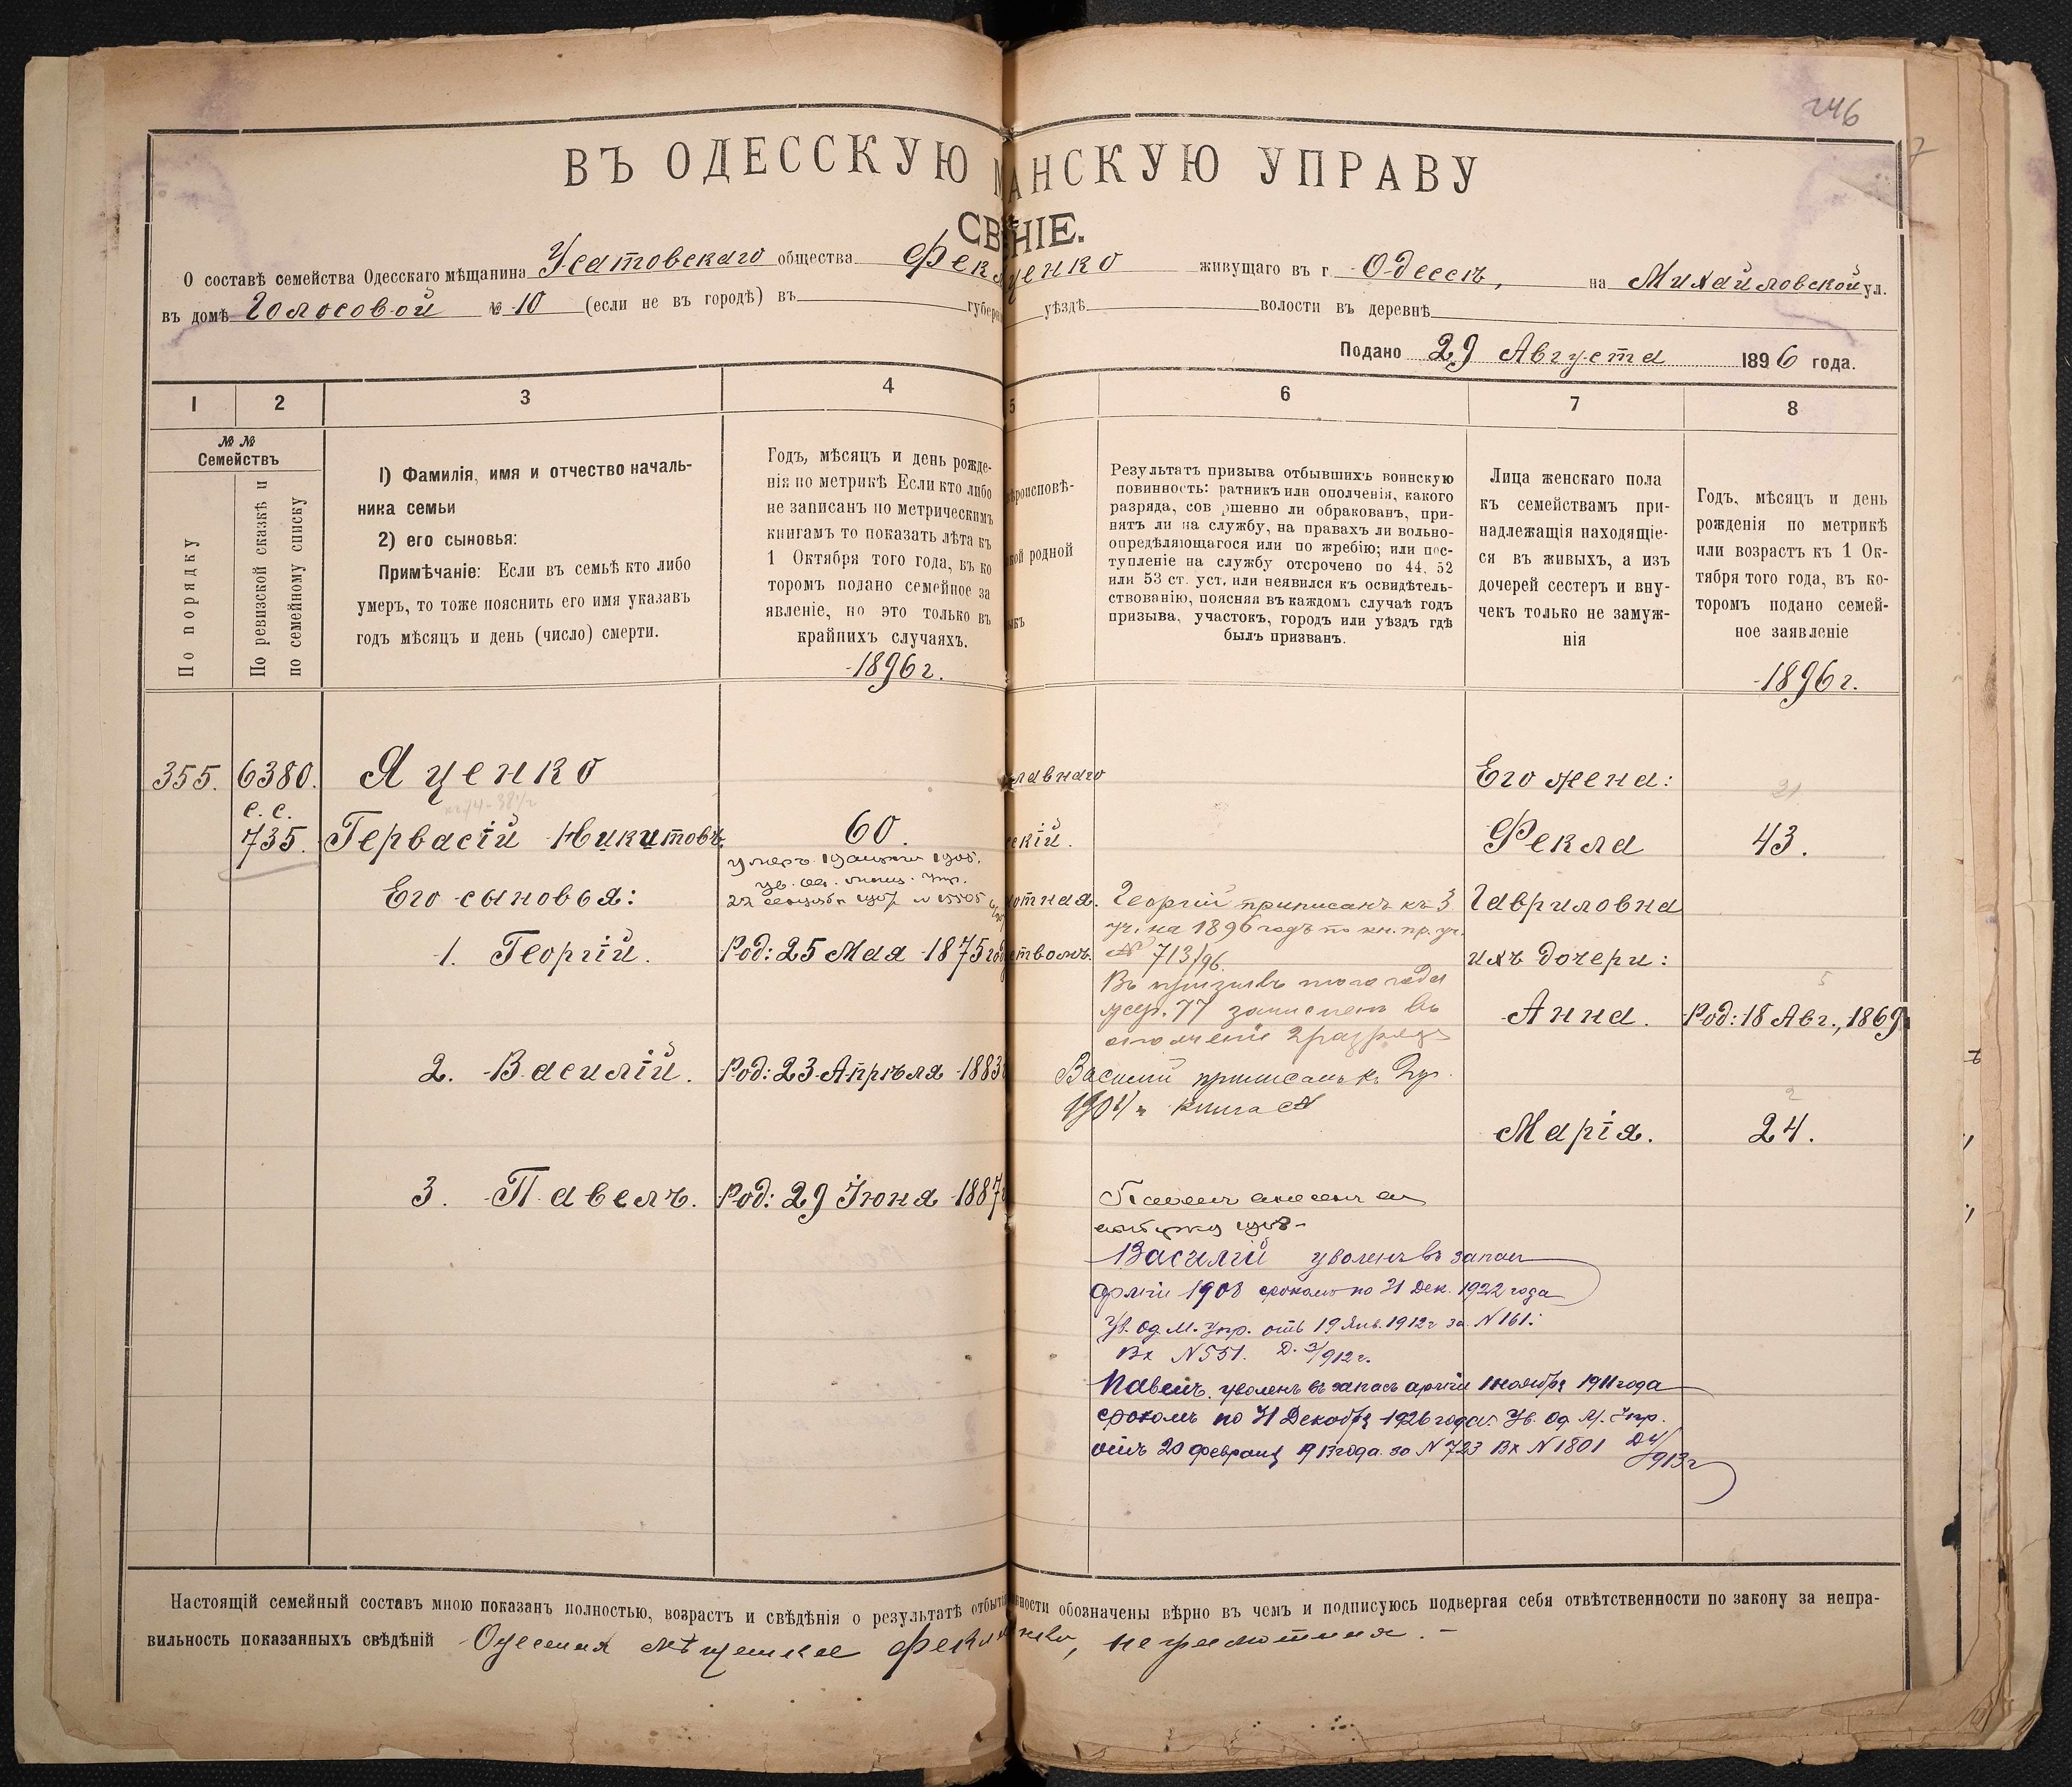 246
7
ВЪ ОДЕССКУЮ АНСКУЮ УПРАВУ
СВ НІЕ.
О составѣ семейства Одесскаго мѣщанина Усатовскаго общества Фек ценко живущаго въ г. Одессѣ, на Михайловской ул.
въ домѣ Голосовой № 10 (если не въ городѣ) въ губер уѣздѣ волости въ деревнѣ
Подано 29 Августа 1896 года.
1 2 3 4 5 6 7 8
№ № Семействъ
По порядку
По ревизской сказкѣ и по семейному списку
1) Фамилія, имя и отчество началь-
ника семьи
2) его сыновья:
Примѣчаніе: Если въ семьѣ кто либо
умеръ, то тоже пояснить его имя указавъ
годъ мѣсяцъ и день (число) смерти.
Годъ, мѣсяцъ и день рожде-
нія по метрикѣ Если кто либо
не записанъ по метрическимъ
книгамъ то показать лѣта къ
1 Октября того года, въ ко
торомъ подано семейное за
явленіе, но это только въ
крайнихъ случаяхъ.
1896 г.
ѣроисповѣ-
кой родной
ыкъ
Результатъ призыва отбывшихъ воинскую
повинность: ратникъ или ополченія, какого
разряда, сов ршенно ли обракованъ, при-
нятъ ли на службу, на правахъ ли вольно-
опредѣляющагося или по жребію; или пос-
тупленіе на службу отсрочено по 44, 52
или 53 ст. уст. или неявился къ освидѣтель-
ствованію, поясняя въ каждомъ случаѣ годъ
призыва, участокъ, городъ или уѣздъ гдѣ
былъ призванъ.
Лица женскаго пола
къ семействамъ при-
надлежащія находящіе-
ся въ живыхъ, а изъ
дочерей сестеръ и вну-
чекъ только не замуж-
нія
Годъ, мѣсяцъ и день
рожденія по метрикѣ
или возрастъ къ 1 Ок-
тября того года, въ ко-
торомъ подано семей-
ное заявленіе
1896 г.
355. 6380. Яценко лавнаго Его жена:
с. с.
735. Гервасій Никитовъ. 60. скій. Фекла 43.
умеръ 19 1905.
Его сыновья: отная. Гавриловна
Георгій приписанъ къ 3
уч. на 1896 годъ по кн. пр. уч.
№ 713/96.
1. Георгій. Род: 25 Мая 1875 год ствомъ. ихъ дочери:
Въ призывъ того года
жер. 77 зачисленъ въ
ополченіе 2 разряда
Анна. Род: 18 Авг., 1869
2. Василій. Род: 23 Апрѣля 1883
Василій приписанъ къ 2 уч.
1904 г. книга А
Марія. 24.
3. Павелъ. Род: 29 Іюня 1887
Павелъ
1908
Василій уволенъ въ запас
арміи 1908 срокомъ по 31 Дек. 1922 года
Ув. Од. М. Упр. отъ 19 Янв. 1912 г за N 161.
Вх N 551. Д. 3/912 г.
Павелъ уволенъ въ запасъ арміи 1 ноября 1911 года
срокомъ по 31 Декабря 1926 года. Ув. Од. М. Упр.
отъ 20 февраля 1913 года за N 723 Вх N 1801 Д 4/913 г
Настоящій семейный составъ мною показанъ полностью, возрастъ и свѣдѣнія о результатѣ отбыті нности обозначены вѣрно въ чемъ и подписуюсь подвергая себя отвѣтственности по закону за непра-
вильность показанныхъ свѣдѣній Одесская мѣщанка Фекла нко, неграмотная. –